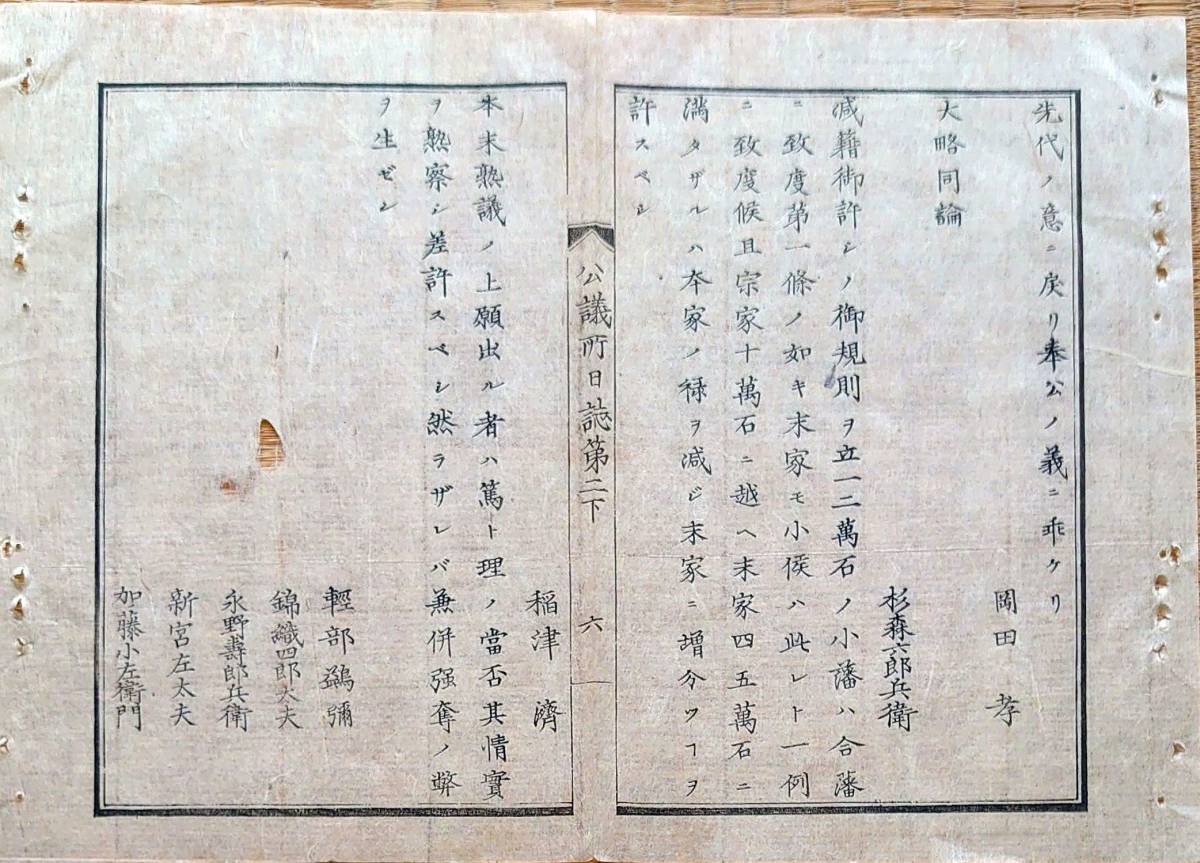 先代ノ意ニ戻リ奉公ノ義ニ乖ケリ
岡田孝
大略同論
杉森六郎兵衛
減藉御許シノ御規則ヲ立一二萬石ノ小藩ハ合藩
ニ致度第一條ノ如キ末家モ小侯ハ此レト一例
ニ致度候且宗家十萬石ニ越ヘ末家四五萬石ニ
満タザルハ本家ノ禄ヲ減ジ末家ニ増分ツヿヲ
許スベシ
公議所日誌第二下 六
稲津濟
本末熟議ノ上願出ル者ハ篤ト理ノ當否其情實
ヲ熟察シ差許スベシ然ラザレバ兼併强奪ノ弊
ヲ生ゼン
輕部鷁彌
錦織四郎太夫
永野壽郎兵衛
新宮左太夫
加藤小左衛門